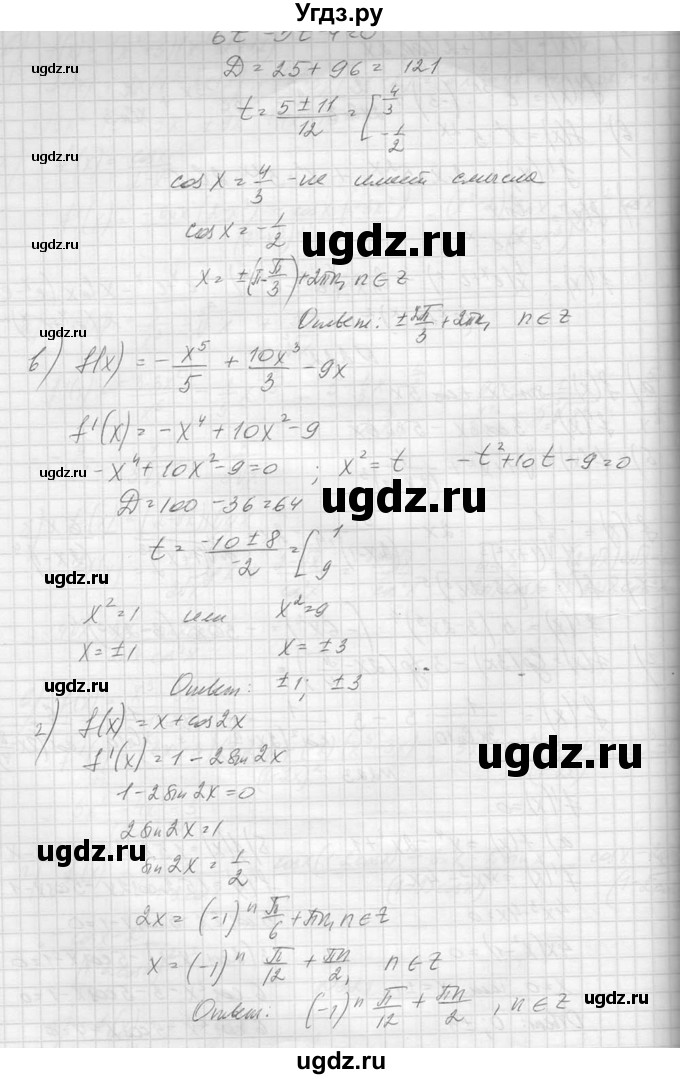 Угдз.ру
6t² - 5t - 4 = 0
ugdz.ru
D = 25 + 96 = 121
t = (5 ± 11)/12 = [ 4/3
-1/2
ugdz.ru
cos x = 4/3 - не имеет смысла
cos x = -1/2
ugdz.ru
ugdz.ru
x = ±(π - π/3) + 2πn, n ∈ Z
Ответ: ± 2π/3 + 2πn, n ∈ Z
ugdz.ru
в) f(x) = - x⁵/5 + 10x³/3 - 9x
f'(x) = -x⁴ + 10x² - 9
ugdz.ru
-x⁴ + 10x² - 9 = 0 ; x² = t -t² + 10t - 9 = 0
D = 100 - 36 = 64
ugdz.ru
t = (-10 ± 8)/-2 = [ 1
9
ugdz.ru
x² = 1 или x² = 9
x = ±1 x = ±3
ugdz.ru
Ответ: ±1; ±3
г) f(x) = x + cos2x
f'(x) = 1 - 2sin2x
ugdz.ru
1 - 2sin2x = 0
2sin2x = 1
ugdz.ru
sin2x = 1/2
2x = (-1)ⁿ π/6 + πn, n ∈ Z
x = (-1)ⁿ π/12 + πn/2, n ∈ Z
ugdz.ru
Ответ: (-1)ⁿ π/12 + πn/2, n ∈ Z
ugdz.ru
ugdz.ru